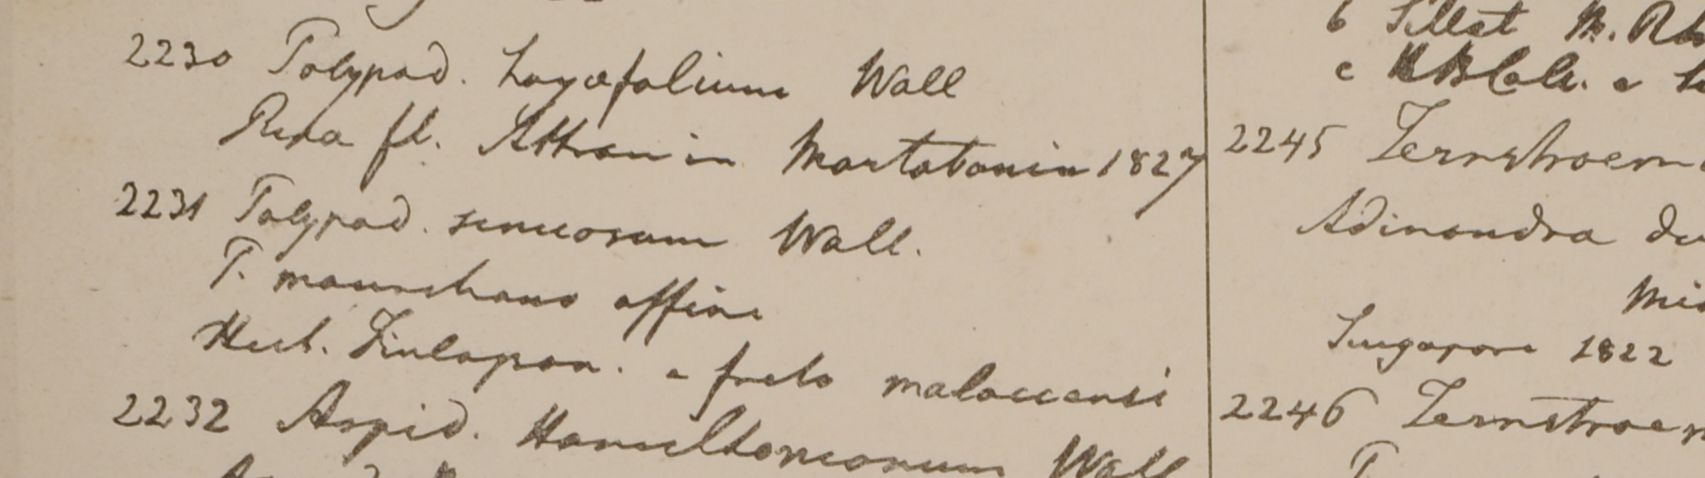 2230 Polypod. Wall
Ripa fl. Attran in Martabania 1827
2231 Polypod. Wall.
P. affine
Herb. Finlayson. e freto malaccensi
2232 Aspid. Hamiltonianum Wall
b Sillet
c
2245 Ternstroem
Adinandra du
Singapore 1822
2246 Ternstroem